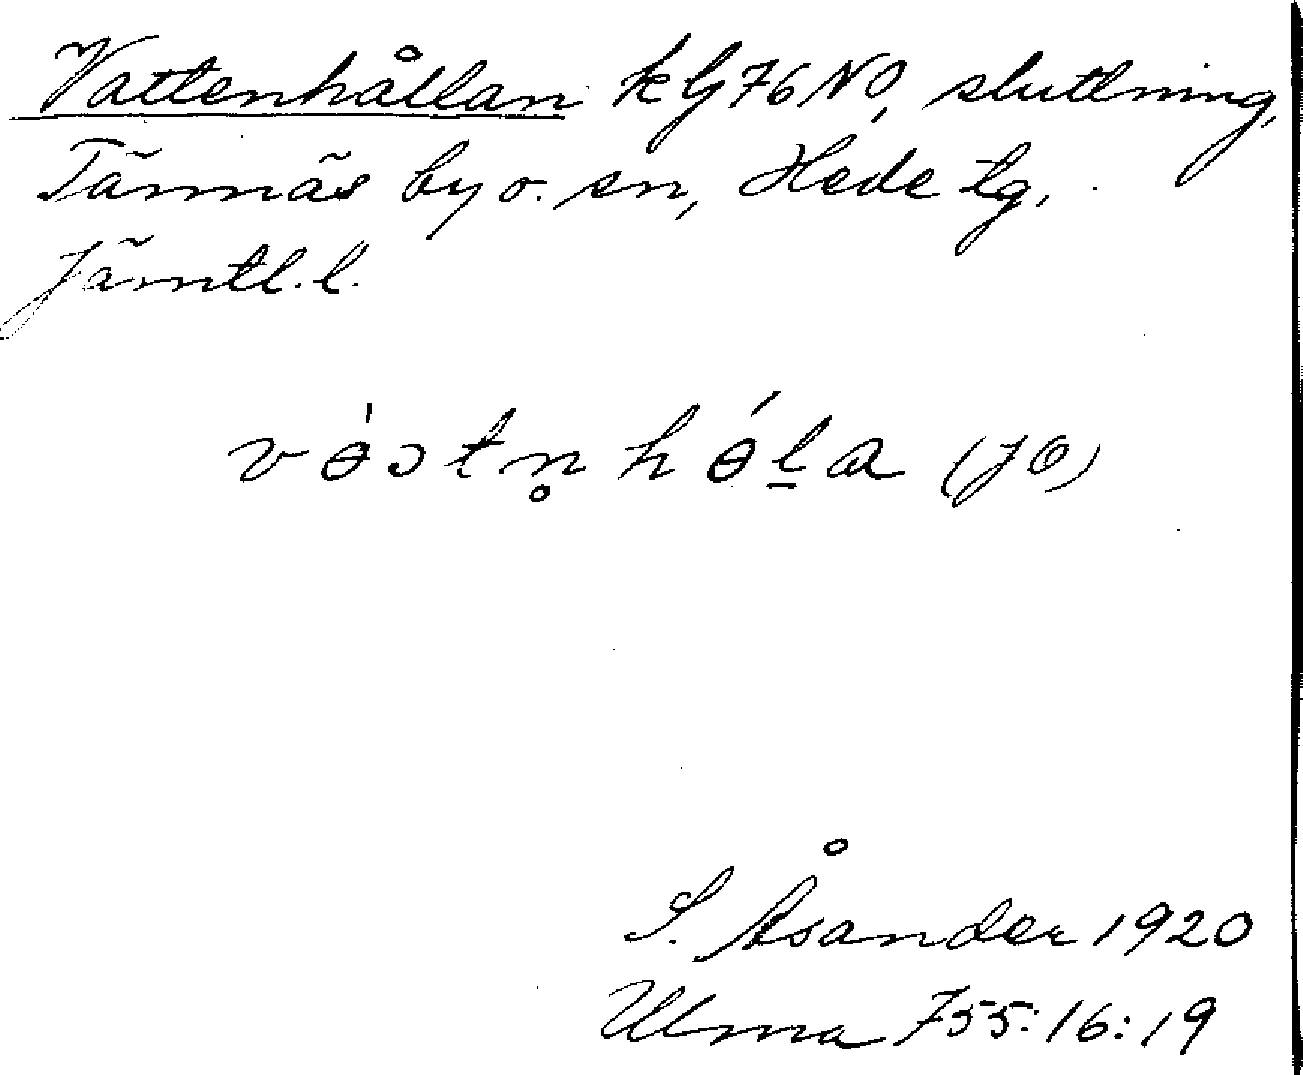 Vattenhållan k G 76 NO, sluttning,
Tännäs by o. sn, Hede tg,
Jämtl. l.
vɵ̀ɔtn̥hɵ́l̲a (JÖ)
S. Åsander 1920
Ulma 755:16:19